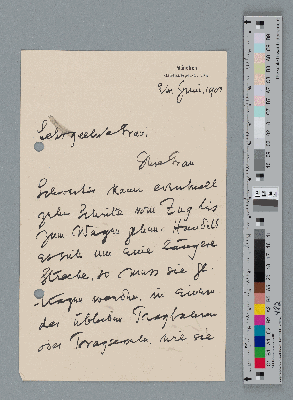 München
Sehr geehrte Frau.
Ihre Frau
Schwester kann eventuell
zehn Schritte vom Zug bis
zum Wagen gehen. Handelt
es sich um eine längere
Strecke, so muss sie ge-
tragen werden, in einem
der üblichen Tragbahren
oder Tragsesseln, wie sie